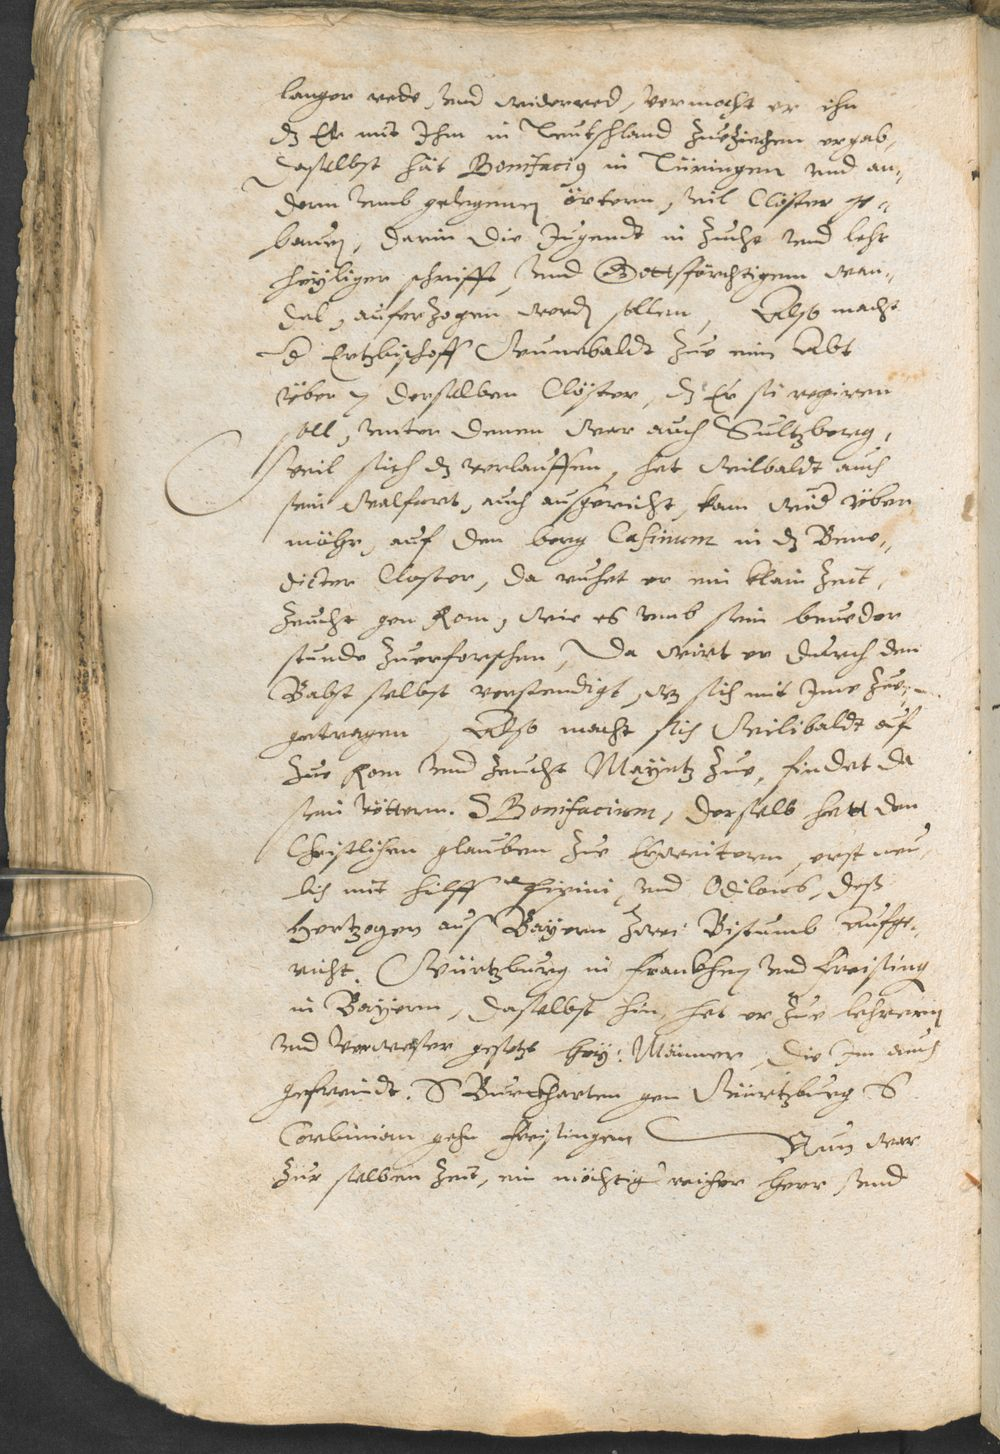 langer rede, und widerred, vermocht er ihn
dz Er mit Ihm in Teutschland zuziehen ergab,
Daselbst hat Bonifacius in Türingen und an-
dern umb gelegenen örtern, vil Clöster ge-
bauen, darin die Jugendt in Zucht und lehr
heyliger schrifft, und Gottsförchtigem wan-
del, auferzogen werden sollen, Also macht
d Ertzbischoff Wunebaldt zue eim Abt
über 7 derselben Clöster, dz Er sie regiren
soll, unter denen war auch Sultzberg,
Weil sich dz verlauffen, het Wilbaldt auch
sein Walfart, auch ausgericht, kam wid über
möhr, auf den berg Casinum in dz Bene-
dicter Closter, da ruhet er ein klain Zeit,
Zeucht gen Rom, wie es umb sein brueder
stunde zuerforschen, Da wirt er durch den
Babst selbst verstendigt, wz sich mit Ime zue-
getragen, Also macht sich Wilibaldt auf
zue Rom und zeucht Mayntz zue, findet da
sein vöttern. S Bonifacium, derselb hett den
Christlichen glauben zue Erweitern, erst neu-
lich mit hilff Pipini, und Odilonis, deß
Hertzogen auß Bayern zwei Bistumb aufge-
richt, Würtzburg in Frankhen und Freising
in Bayern, daselbst hin, het er zue lehrern
und verweser gesetzt hey: Männer, die Im auch
gefreundt. S Burckharten gen Würtzburg S
Corbinian gehn Freisingen Nun war
zur selben Zeit, ein möchtig reicher Herr und